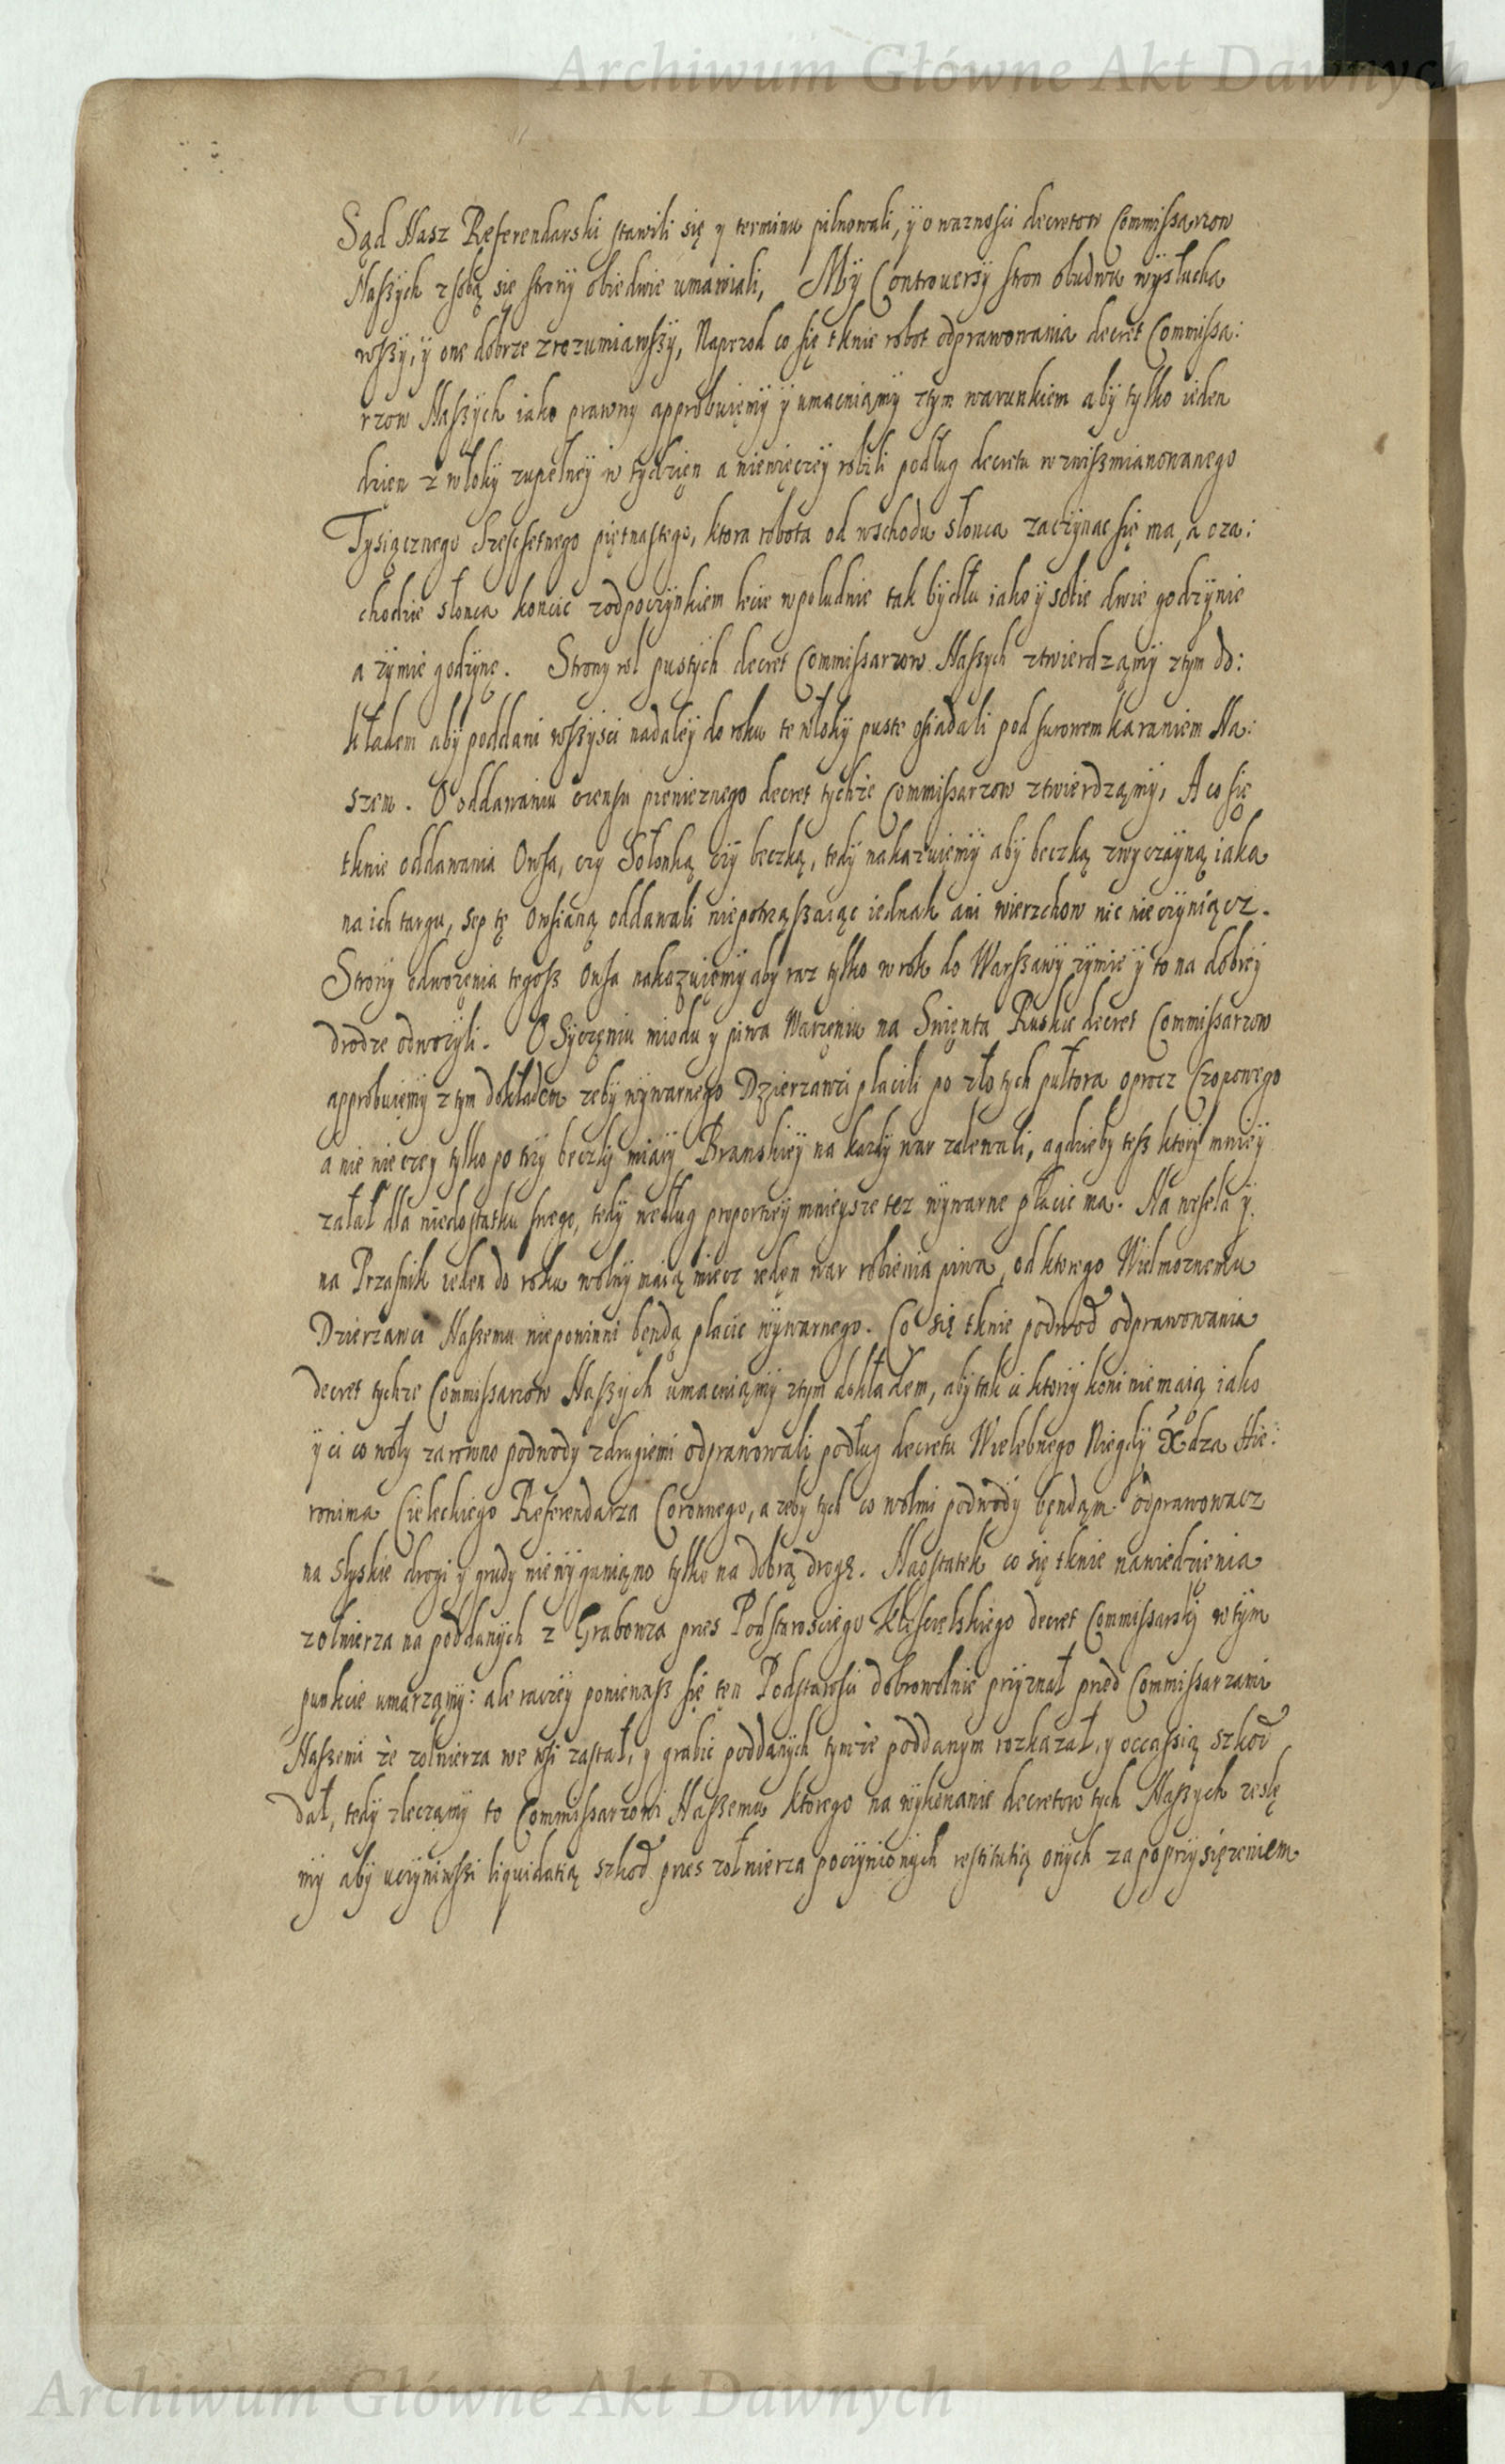 Archiwum Główne Akt Dawnych
Sąd Nasz Referendarski stawili się y terminu pilnowali, ÿ o waznosci decretow Commissarzow
Naszÿch z sobą się stronÿ obiedwie umawiali, Mÿ Controuersÿ stron obudwu wÿslucha
wszÿ, ÿ one dobrze zrozumiawszÿ, Naprzod co się tknie robot odprawowania decret Commissa:
rzow Naszÿch iako prawny approbuięmÿ ÿ umacniąmÿ ztym warunkiem abÿ tylko ieden
dzien z włokÿ zupełnēÿ w tydzięn a niewięczēÿ robili podług decretu wzwiszmianowanego
Tysiącznego Szescsetnego piętnastego, ktora robota od wschodu słonca zaczÿnac się ma, a oza:
chodzie słonca koncic zodpoczÿnkiem lecie wpoludnie tak bÿdłu iako ÿ sobie dwie godzÿnie
a zÿmie godzÿnę. Strony rol pustÿch decret Commissarzow Naszÿch ztwierdząmÿ ztym do:
kładem abÿ poddani wszÿsci nadalēÿ do roku te włokÿ puste osiadali pod surowem karaniem Na:
szem. O oddawaniu czensu pienieznego decret tychże Commissarzow ztwierdząmÿ, A co się
tknie oddawania Owsa, czy Solonką czÿ beczką, tedÿ nakazuięmÿ abÿ beczką zwyczaÿną iaka
na ich targu, sep tę owsianą oddawali niepotrząszaiąc iednak ani wierzchow nic nieczÿniącz.
Stronÿ odwozęnia tegosz Owsa nakazuięmÿ aby raz tylko w rok do Warszawÿ zÿmie ÿ to na dobrēÿ
drodze odwozÿli. O Sÿczęniu miodu y piwa Warzęniu na Swięnta Ruskie decret Commissarzow
approbuięmÿ z tym dokładem zebÿ wÿwarnego Dzierzawci placili po złotych pułtora oprocz Czopowego
a nie wieczey tylko po trzÿ beczkÿ miarÿ Branskiēÿ na kazdÿ war zalewali, a gdzie by tesz ktorÿ mniēÿ
zalał dla niedostatku swego, tedÿ według proportiēÿ mnieysze tez wÿwarne płacic ma. Na wesela ÿ
na Przasnik ieden do roku wolnÿ maią miecz iedęn war robienia piwa, od ktorego Wielmoznemu
Dzierzawci Naszemu niepowinni będą placic wÿwarnego. Co się tknie podwod odprawowania
decret tychze Commissarzow Naszÿch umacniąmÿ ztym dokładem, abÿ tak ci ktorzÿ koni niemaią iako
ÿ ci co wołÿ zarowno podwody zdrugiemi odprawowali podług decretu Wielebnego Niegdÿ Xdza Hie:
ronima Cieleckiego Referendarza Coronnego, a zeby tych co wołmi podwodÿ będąm odprawowacz
na slyskie drogi y grudy niewÿganiąno tylko na dobrą drogę. Naostatek co się tknie nawiedzienia
zolnierza na poddanych z Grabowca przes Podstarosciego Kleszczelskiego decret Commissarskÿ w tÿm
punkcie umarząmÿ: ale raczēÿ poniewasz się tęn Podstarosci dobrowolnie przÿznał przed Commissarzami
Naszemi że zolnierza we wsi zastał, y grabic poddanÿch tymże poddanym rozkazał, y occassią szkod
dał, tedÿ zleczamÿ to Commissarzowi Naszemu ktorego na wÿkonanie decretow tych Naszÿch ześlę
mÿ aby uczÿniwszi liquidatią szkod przes zołnierza poczÿnionÿch restitutią onÿch za poprzÿsięzeniem
Archiwum Główne Akt Dawnych